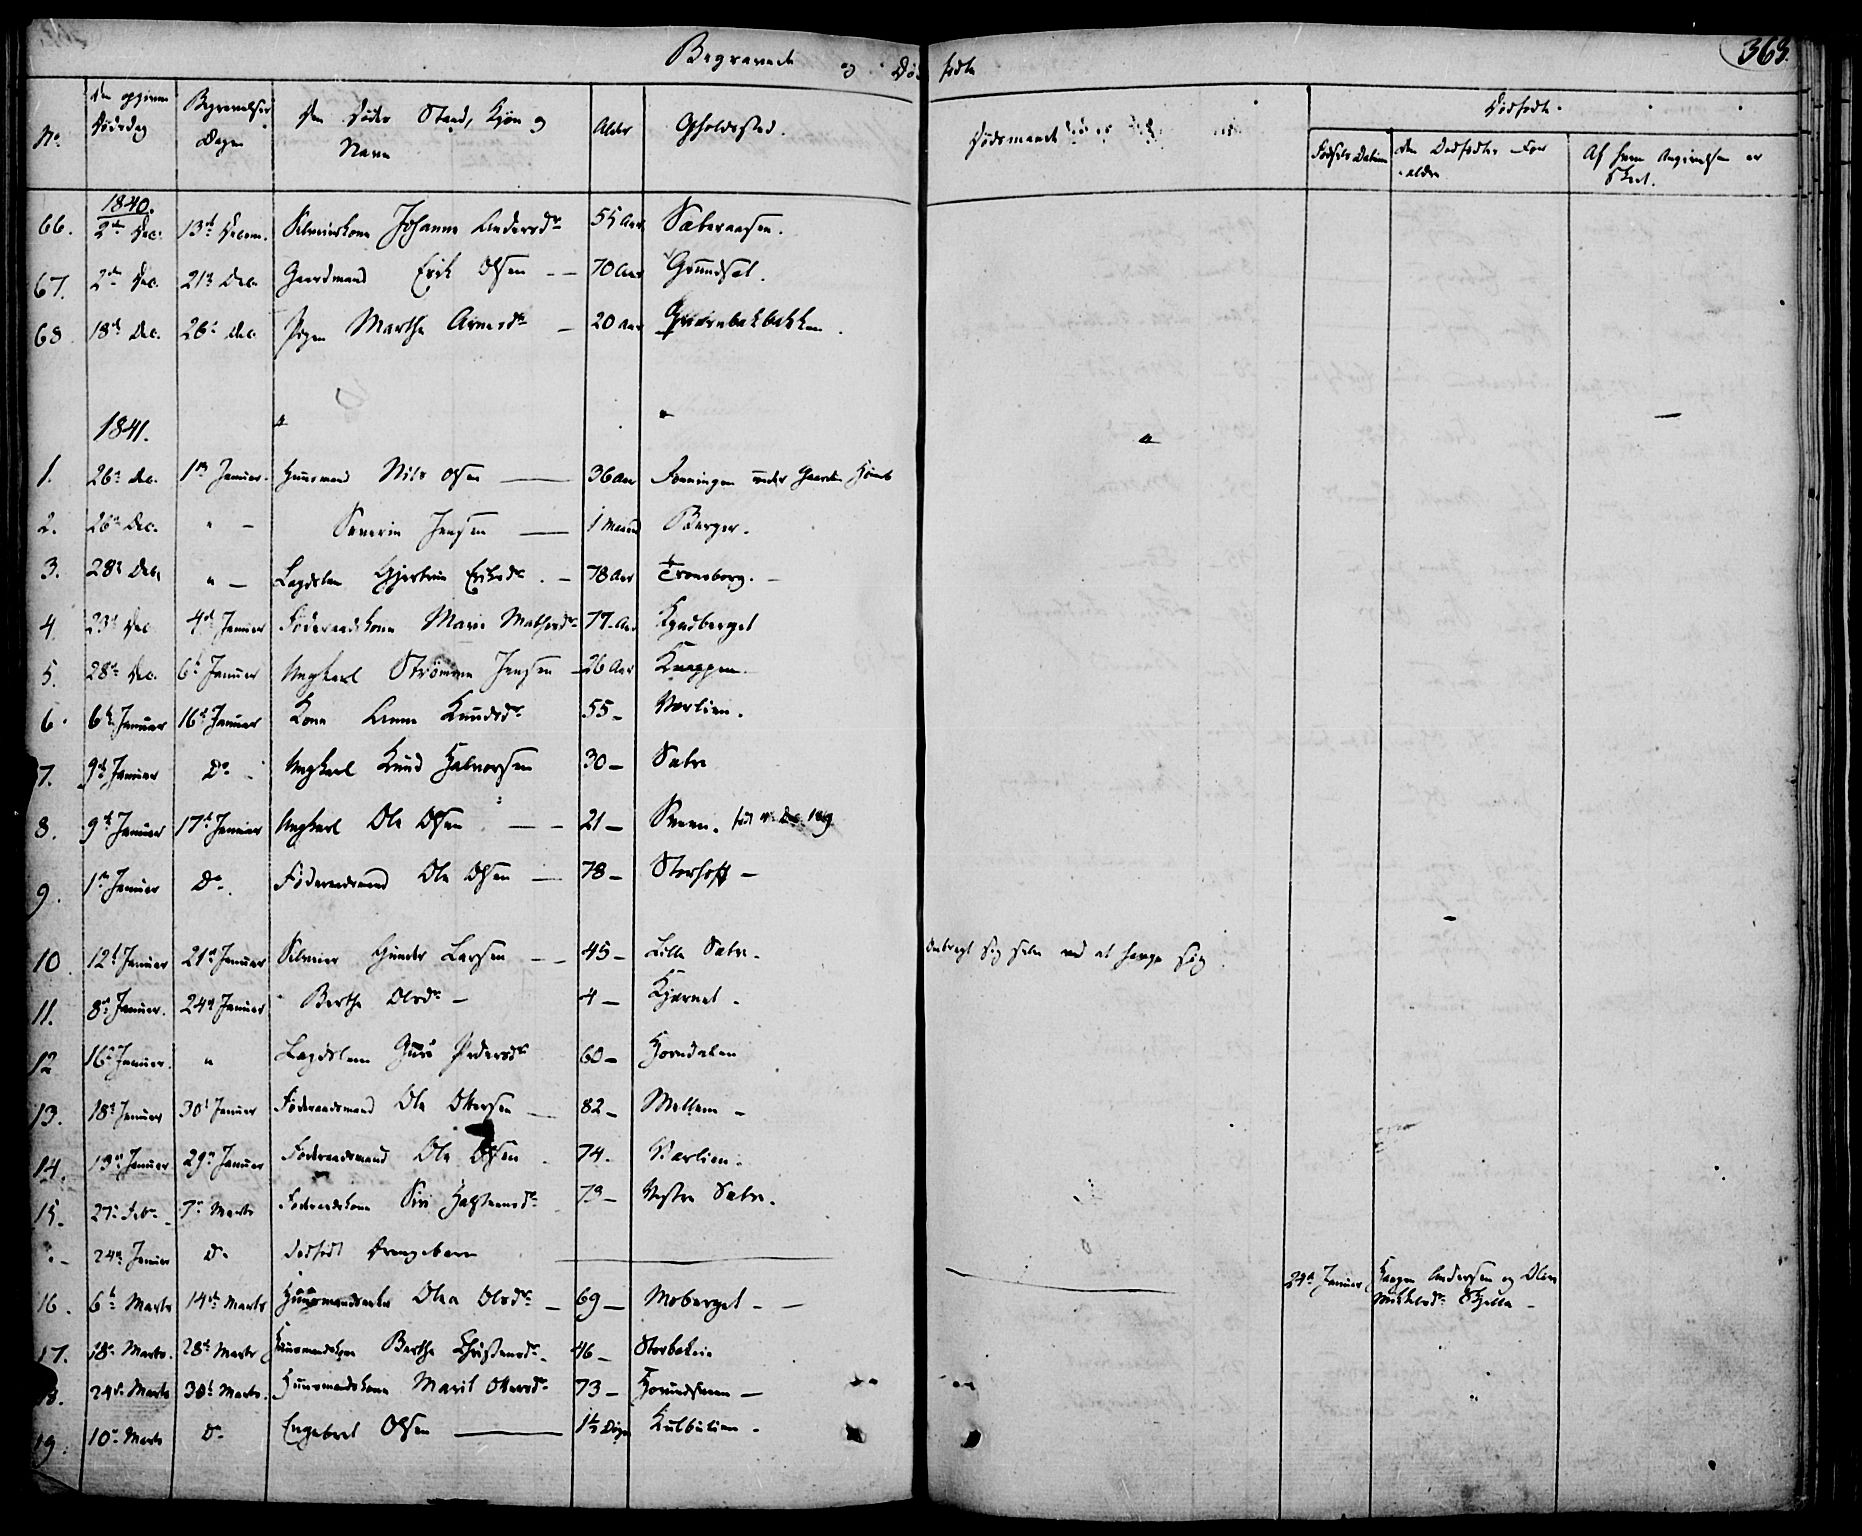 Begravede og Dødfødte
368.
No. | Den opgivne Dødsdag | Begravelses Dagen | Den Dødes Stand, Kjøn og Navn | Alder | Opholdssted. | Dødsmaade
Dødfødte.
Fødsels Datum | Den Dødfødtes Forældre | Af hvem Angivelsen er skeet.
1840.
66. 2den Dec. 13de Decem. Selveierkone Johanne Andersdr 55 Aar Sæteraasen.
67. 2den Dec. 21de Dec. Gaardmand Erik Olsen — 70 Aar Grundset.
68. 18de Dec. 26de Dec. Pigen Marthe Arnesdr — 20 Aar Qværnbækbakken.
1841.
1. 26de Dec. 1ste Januar. Huusmand Nils Olsen — 36 Aar under Gaarden
2. 26de Dec. " — Severin Jensen — 1 Maaned Berger.
3. 28de Dec. " — Lægdslem Kjerstine Eriksdr. — 78 Aar Tronsborg. —
4. 23de Dec. 4de Januar Føderaadskone Marie Mathisdr 77 Aar Kyndberget
5. 28de Dec. 6te Januar Ungkarl Strømmen Jensen — 26 Aar Knappen.
6. 6te Januar 16de Januar Kone Anne Knudsdr 55 — Varlien.
7. 9de Januar Do — Ungkarl Knud Halvorsen 30 — Sætre
8. 9de Januar 17de Januar Ungkarl Ole Olsen — 21 — Sveen. født
9. 1ste Januar Do. Føderaadsmand Ole Olsen — 78 — Storhoff —
10. 12te Januar 21de Januar Selveier Gunder Larsen — 45 — Lille Sætre. Ombragt sig selv ved at hænge sig.
11. 8de Januar. 24de Januar Berthe Olsdr — 4 — Kjernet.
12 16de Januar. " Lægdslem Guri Pedersdr 60 — Horndalen
13. 18de Januar 30te Januar Føderaadsmand Ole Ottersen — 82 — Mellem —
14. 13de Januar 29de Januar Føderaadsmand Ole Olsen 74. Varlien.
15. 27de Febr. 7de Marts Føderaadskone Siri Halstensdr 79 — Vestre Sætre.
24de Januar Do Dødfødt Drengebarn — 24de Januar Haagen Andersen og Olea
Mikkelsdr —
16. 6te Marts 14de Marts Huusmandsenke Olea Olsdr — 69 — Moberget —
17. 18de Marts. 28de Marts Huusmandskone Berthe Christensdr. 46 — Storbekeie
18. 24de Marts 30te Marts. Huusmandskone Marit Ottersdr 73 — Horundsveen —
19. 10de Marts Do Engebret Olsen — 1½ Døgn Kulbulien —